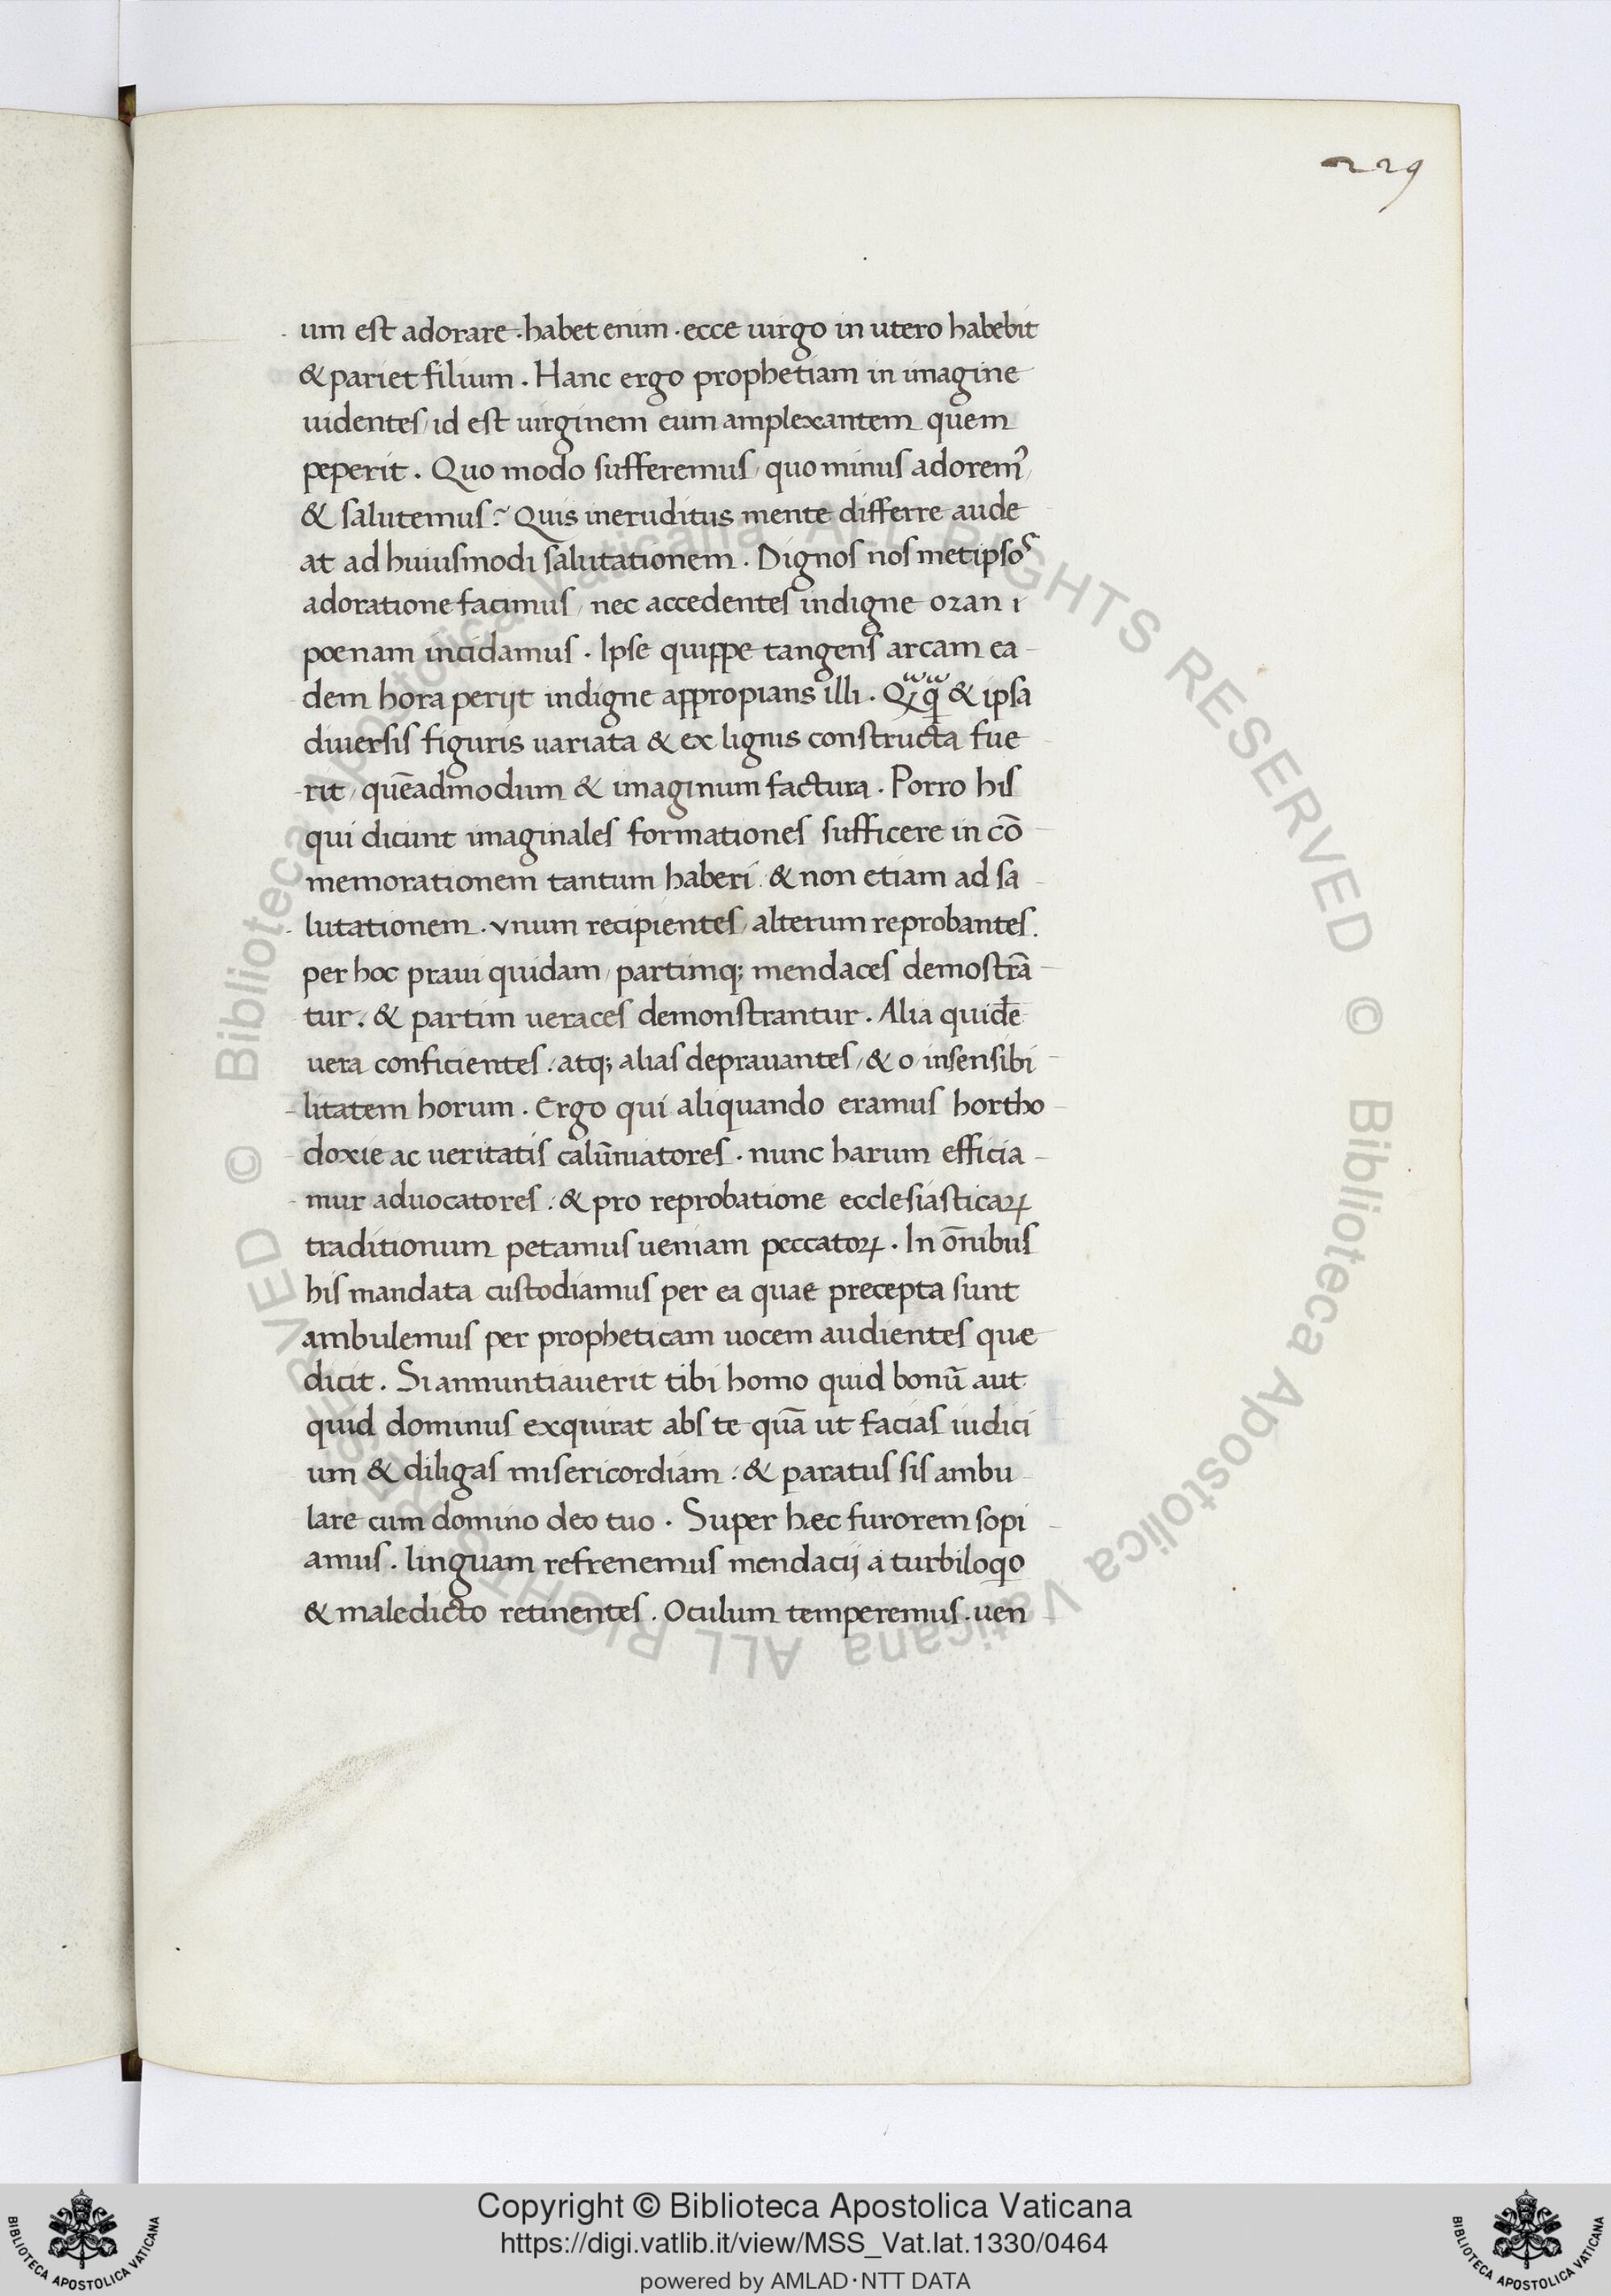 229
um est adorare · habet enim · ecce uirgo in utero habebit
& pariet filium . Hanc ergo prophetiam in imagine
uidentes / id est uirginem eum amplexantem quem
peperit . Quo modo sufferemus / quo minus adoremꝰ /
& salutemus? Quis ineruditus mente differre aude
at ad huiusmodi salutationem . Dignos nos metipsos
adoratione facimus / nec accedentes indigne oran i
poenam incidamus . Ipse quippe tangens arcam ea
dem hora perijt indigne appropians illi . & ipsa
diuersis figuris uariata & ex lignis constructa fue
rit / quēadmodum & imaginum factura . Porro his
qui dicunt imaginales formationes sufficere in cō
memorationem tantum haberi . & non etiam ad sa
lutationem . vnum recipientes / alterum reprobantes .
per hoc praui quidam / partimq; mendaces demostrā
tur . & partim ueraces demonstrantur . Alia quidē
uera conficientes : atq; alias deprauantes / & o insensibi
litatem horum . Ergo qui aliquando eramus hortho
doxie ac ueritatis calūniatores . nunc harum efficia
mur aduocatores : & pro reprobatione ecclesiasticaꝝ
traditionum petamus ueniam peccatoꝝ . In ōnibus
his mandata custodiamus per ea quae precepta sunt
ambulemus per propheticam uocem audientes que
dicit . Si annuntiauerit tibi homo quid bonū aut
quid dominus exquirat abs te quā ut facias iudici
um & diligas misericordiam : & paratus sis ambu
lare cum domino deo tuo . Super hæc furorem sopi
amus . linguam refrenemus mendacij a turbiloqo
& maledicto retinentes . Oculum temperemus . uen
© Biblioteca Apostolica Vaticana ALL RIGHTS RESERVED
© Biblioteca Apostolica Vaticana ALL RIGHTS RESERVED
BIBLIOTECA APOSTOLICA VATICANA
Copyright © Biblioteca Apostolica Vaticana
https://digi.vatlib.it/view/MSS_Vat.lat.1330/0464
powered by AMLAD·NTT DATA
BIBLIOTECA APOSTOLICA VATICANA